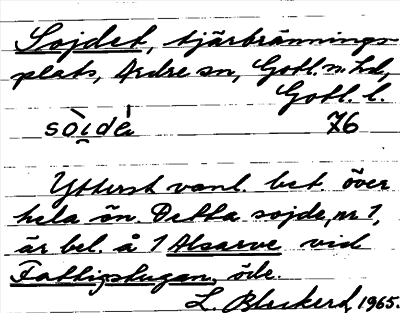 Sojdet, tjärbrännings-
plats, Ardre sn, Gotl. n. hd,
Gotl. l.
sòi̯dė 76
Ytterst vanl. bet. över
hela ön. Detta sojde, nr 1,
är bel. å 1 Alsarve vid
Fattigstugan, öde.
L. 1965.